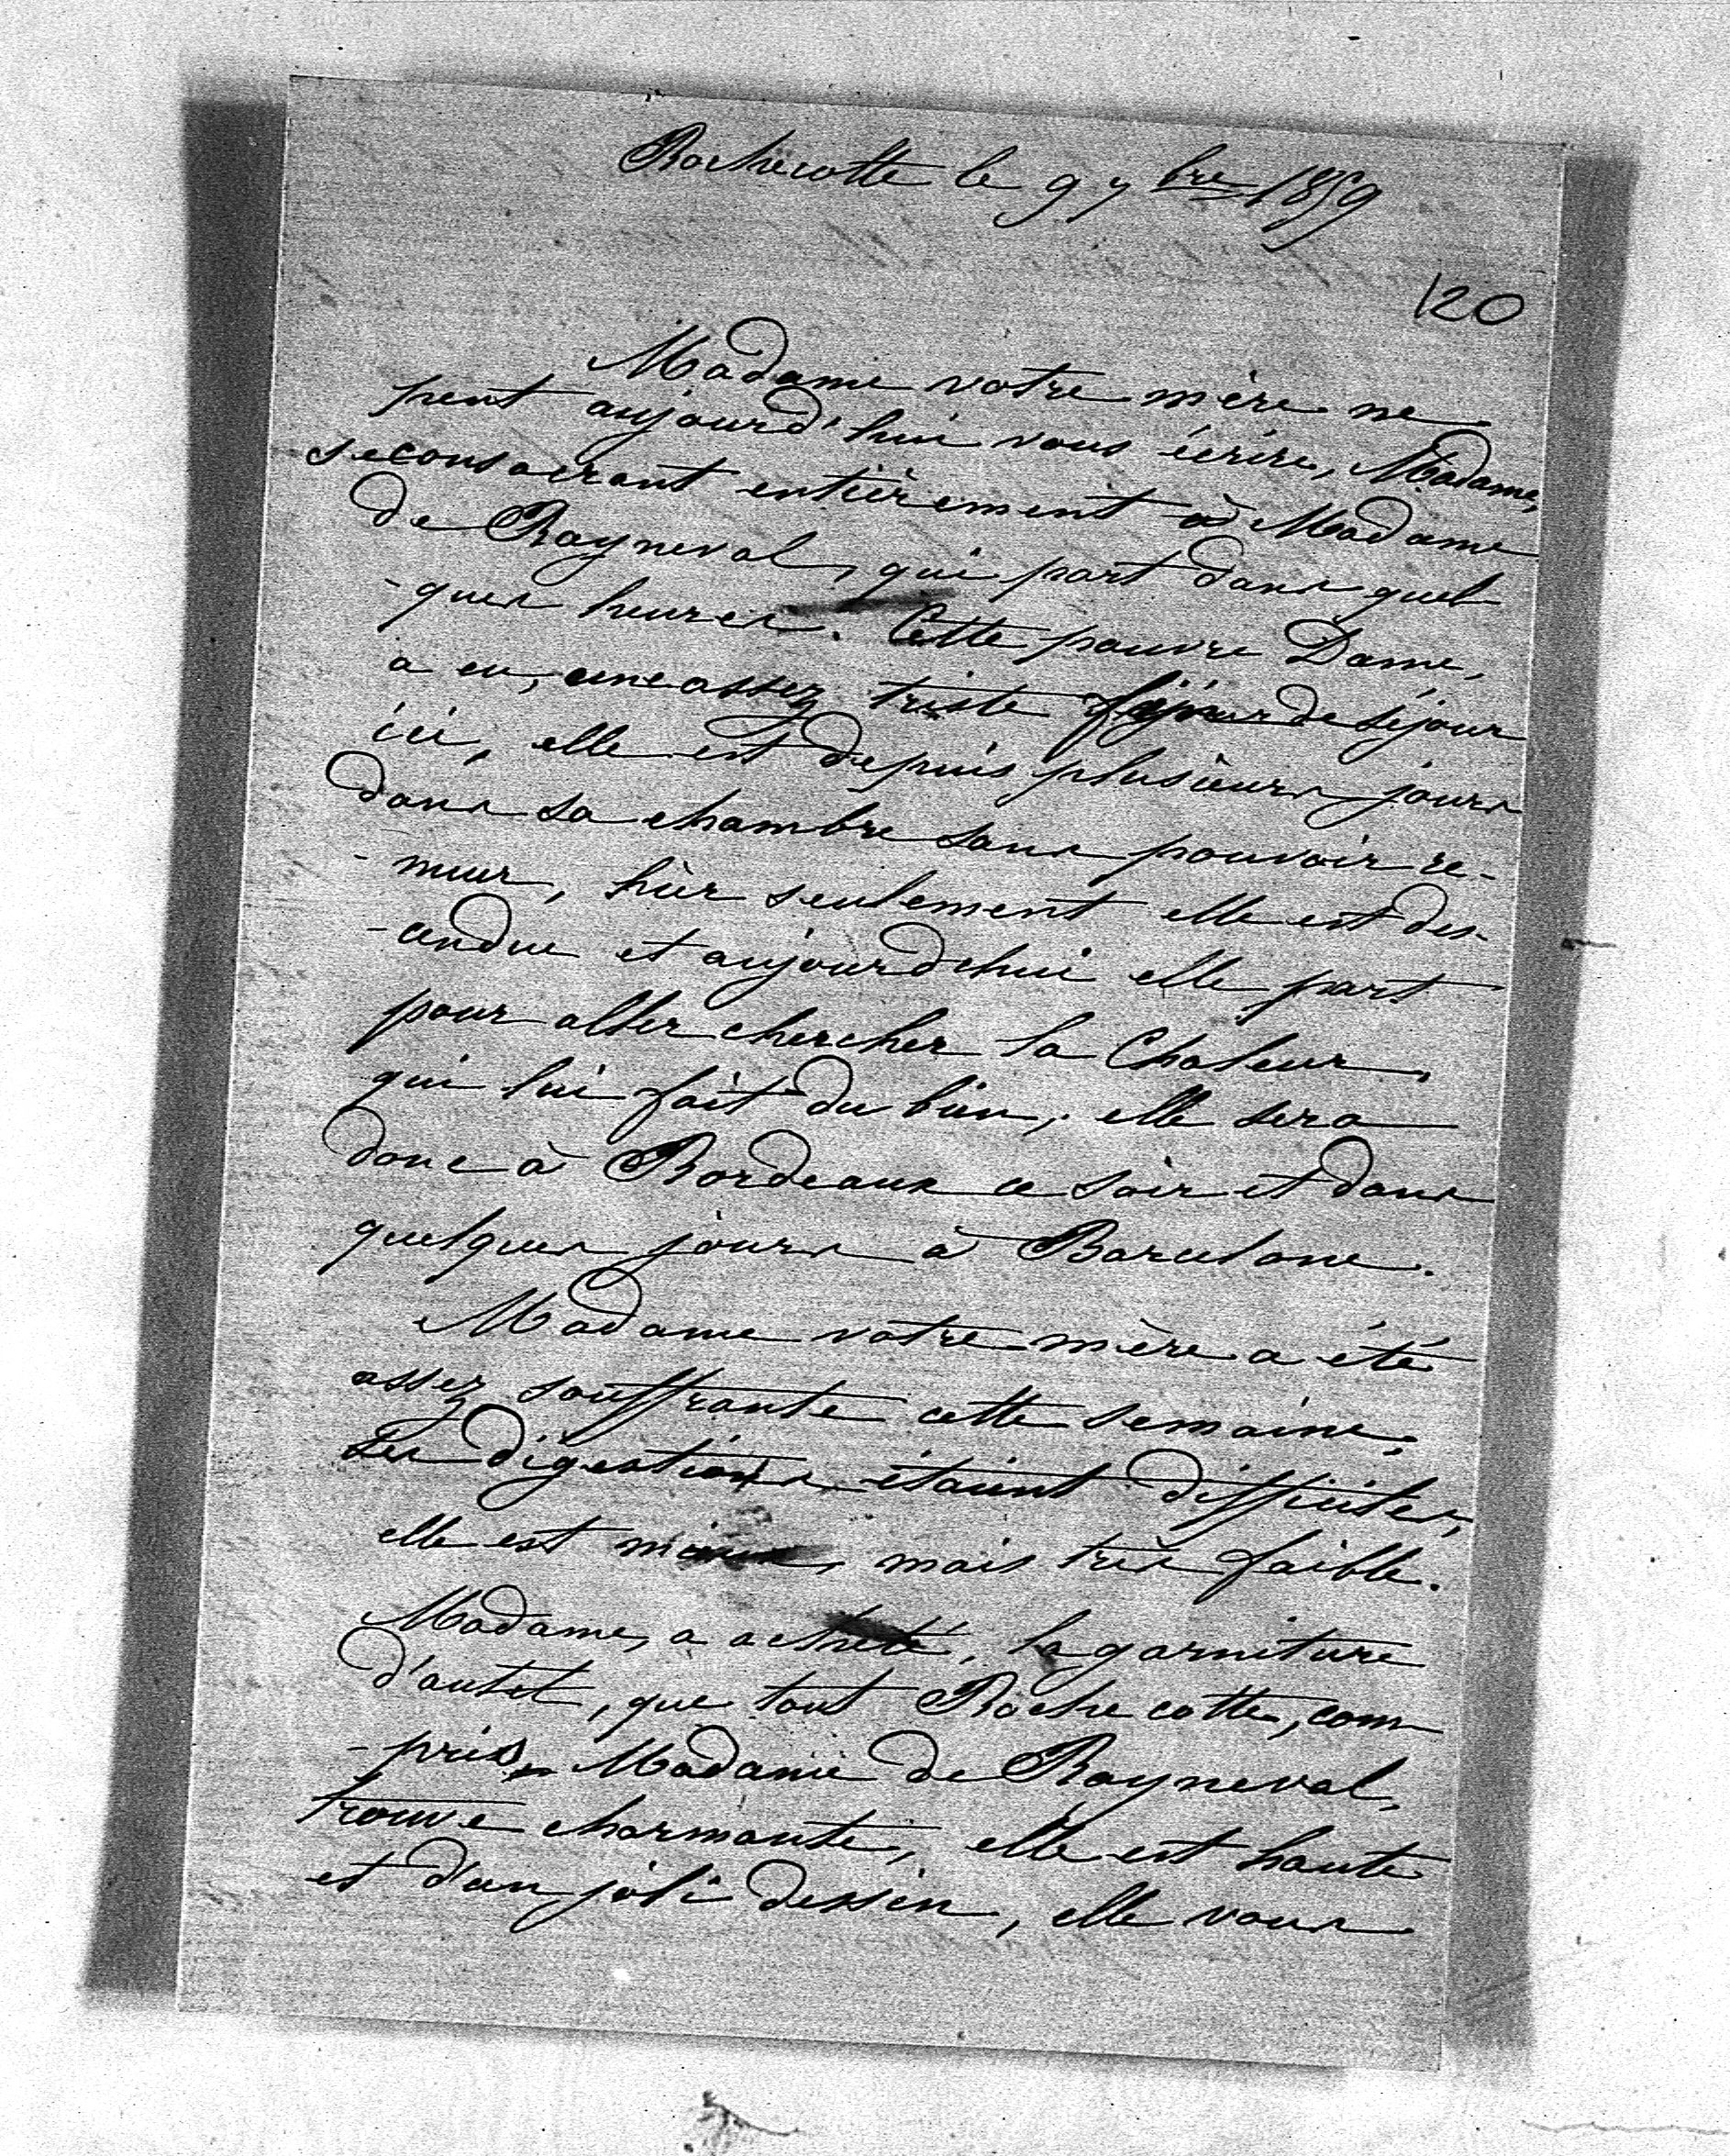 Rochecotte le 9 7bre 1859
120
Madame votre mère ne
peut aujourd'hui vous écrire, Madame,
se consacrant entièrement à Madame
de Rayneval, qui part dans quel
-ques heures. Cette pauvre Dame,
a eu, une assez triste de séjour
ici, elle est depuis plusieurs jours
dans sa chambre sans pouvoir re-
-muer, hier seulement elle est des-
-cendue et aujourdehui elle part
pour aller chercher la Chaleur,
qui lui fait du bien; elle sera
donc à Bordeaux ce soir et dans
quelques jours à Barcelone.
Madame votre mère a été
assez souffrante cette semaine,
ses digestions étaient difficiles,
elle est mieux, mais très faible.
Madame, a acheté, la garniture
d'autel, que tout Rochecotte, com
-pris Madame de Rayneval,
trouve charmante, elle est haute
et d'un joli dessin, elle vous